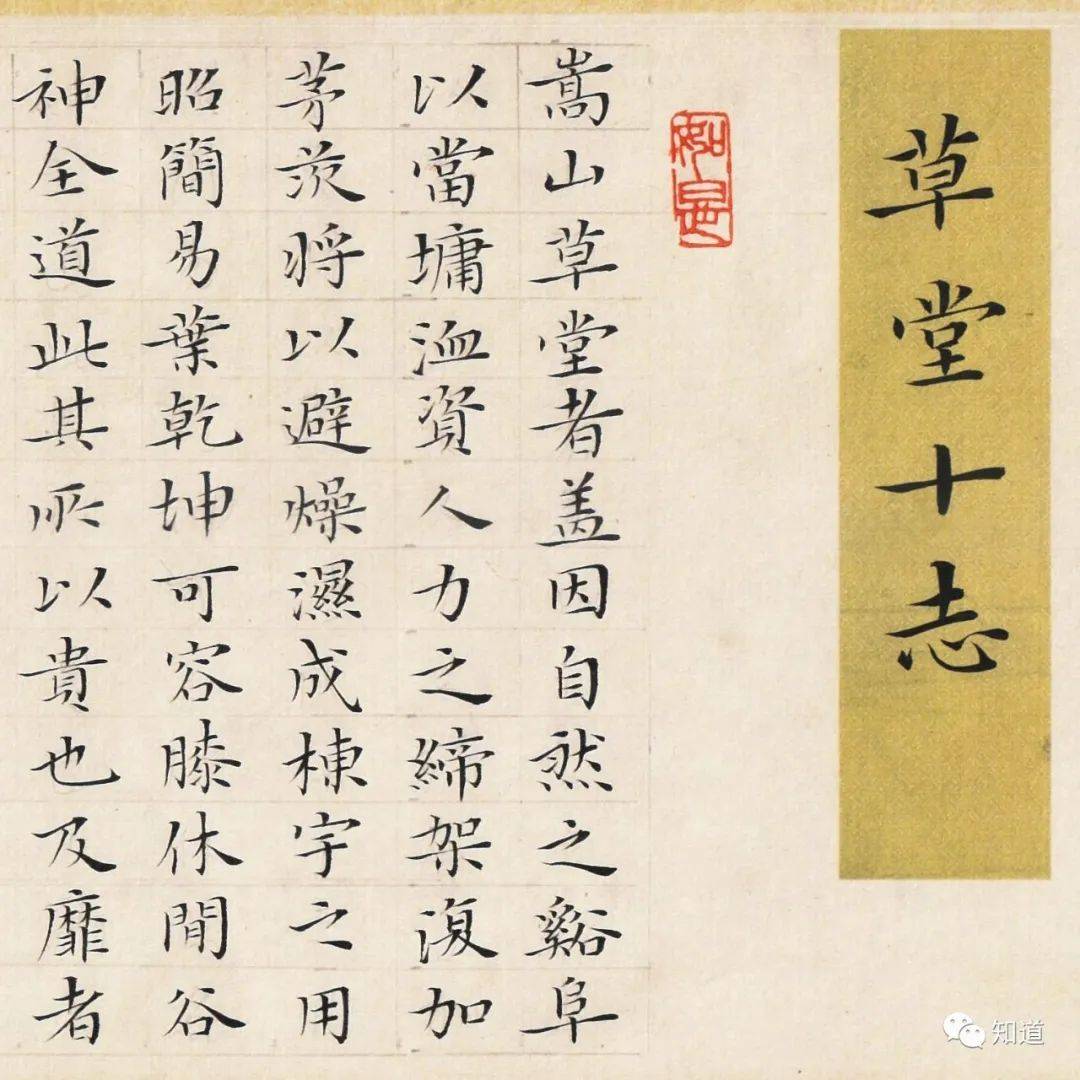 草堂十志
如是
嵩山草堂者盖因自然之谿阜
以當墉洫資人力之締架復加
茅茨將以避燥濕成棟宇之用
昭簡易葉乾坤可容膝休閒谷
神全道此其所以貴也及靡者
知道